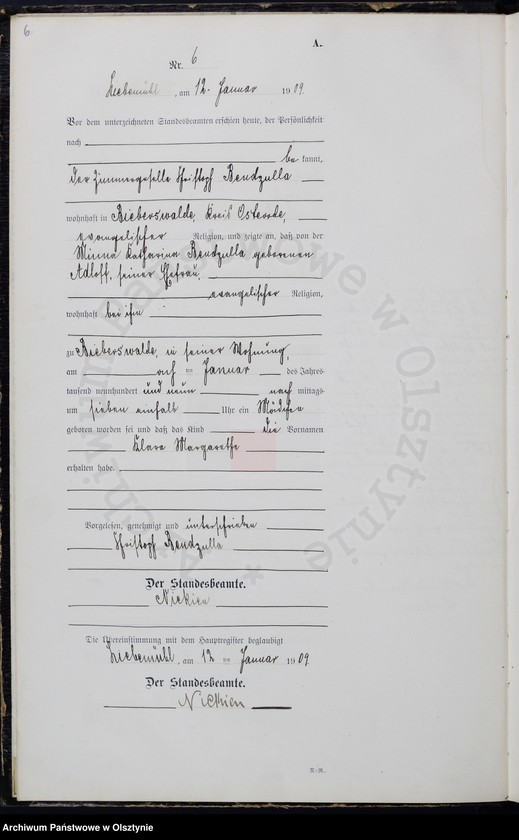 6
A.
Nr. 6
Liebemühl, am 12. Januar 1909.
Vor dem unterzeichneten Standesbeamten erschien heute, der Persönlichkeit
nach
be kannt,
der Zimmergeselle Christoph Bendzulla
wohnhaft in Bieberswalde, Kreis Osterode,
evangelischer Religion, und zeigte an, daß von der
Minna Katharina Bendzulla geborenen
Adloff, seiner Ehefrau,
evangelischer Religion,
wohnhaft bei ihm
zu Bieberswalde, in seiner Wohnung,
am Januar des Jahres
tausend neunhundert und neun nach mittags
um sieben einhalb Uhr ein Mädchen
geboren worden sei und daß das Kind die Vornamen
Klara Margarethe
erhalten habe.
Vorgelesen, genehmigt und unterschrieben
Christoph Bendzulla
Der Standesbeamte.
Nickien
Die Übereinstimmung mit dem Hauptregister beglaubigt
Liebemühl, am 12 ten Januar 1909.
Der Standesbeamte.
Nickien
N-R.
Archiwum Państwowe w Olsztynie
Archiwum Państwowe w Olsztynie *